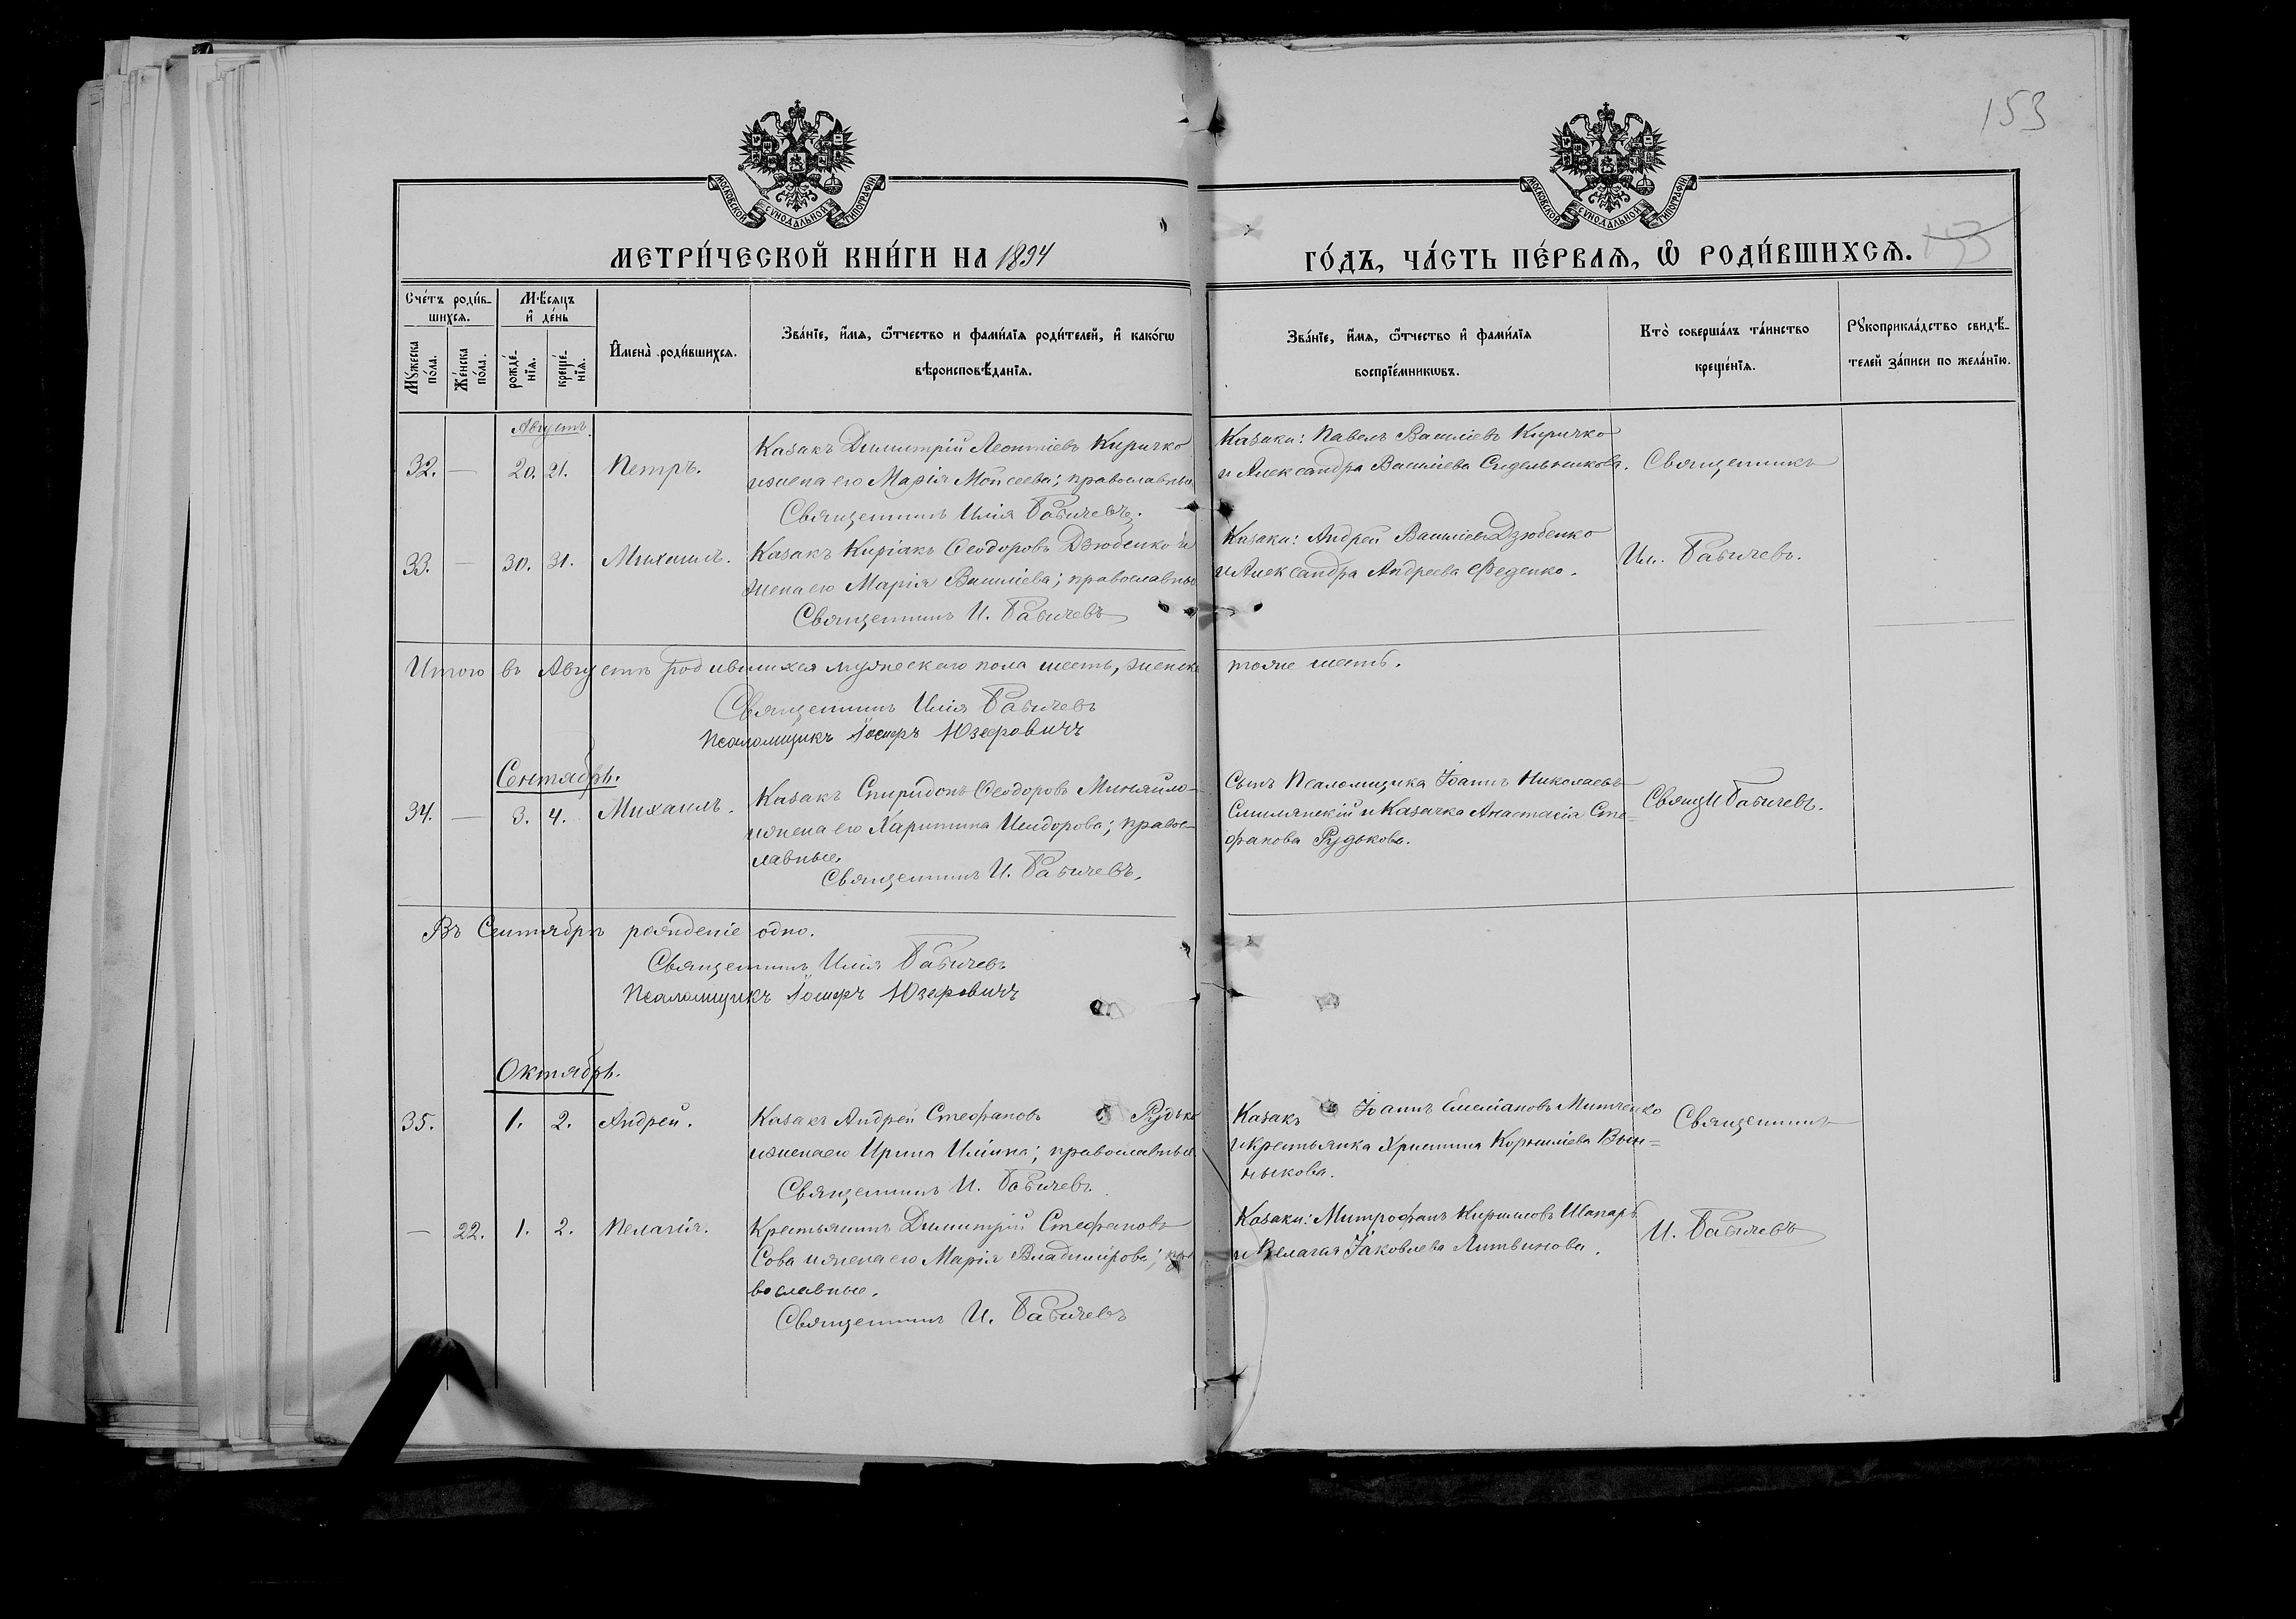 153
МОСКОВСКОЙ СѴНОДАЛЬНОЙ ТИПОГРАФІИ
МОСКОВСКОЙ СѴНОДАЛЬНОЙ ТИПОГРАФІИ
МЕТРИ́ЧЕСКОЙ КНИ́ГИ НА 1894
ГО́ДЪ, ЧА́СТЬ ПЕ́РВАЯ, Ѡ РОДИ́ВШИХСЯ.
Сче́тъ роди́в-
шихся.
Мꙋ́жеска по́ла.
Же́нска по́ла.
Мѣ́сяцъ
и҆ де́нь
рожде́-
нїя.
креще́-
нїя.
И҆мена̀ роди́вшихся.
Зва́нїе, и҆́мя, ѻ҆́тчество и фами́лїя роди́телей, и҆ како́гѡ
вѣроисповѣ́данїя.
Зва́нїе, и҆́мя, ѻ҆́тчество и҆ фами́лїя
воспрїе́мникѡвъ.
Кто̀ соверша́лъ та́инство
креще́нїя.
Рꙋкоприкла́дство свидѣ́-
телей за́писи по жела́нїю.
Августъ.
32. — 20. 21. Петръ.
Казакъ Димитрій Леонтіевъ Киричко
и жена его Марія Моѵсеева; православны
Священникъ Илія Бабичевъ.
Казаки: Павелъ Василіевъ Киричко
и Александра Василіева Сидельникова.
Священникъ
33. — 30. 31. Михаилъ.
Казакъ Киріакъ Ѳеодоровъ Дзюбенко и
жена его Марія Василіева; православны
Священникъ И. Бабичевъ
Казаки: Андрей Василіевъ Дзюбенко
и Александра Андреева Феденко.
Ил. Бабичевъ.
Итого въ Августѣ родившихся мужескаго пола шесть, женска
тоже шесть.
Священникъ Илія Бабичевъ
Псаломщикъ Іосифъ Юзефовичъ
Сентябрь.
34. — 3. 4. Михаилъ.
Казакъ Спиридонъ Ѳеодоровъ Миняйло
и жена его Харитина Исидорова; правос-
лавные.
Священникъ И. Бабичевъ.
Сынъ Псаломщика Іоаннъ Николаевъ
Смилянскій и Казачка Анастасія Сте=
фанова Рудькова.
Свящ И Бабичевъ.
Въ Сентябрѣ рожденіе одно.
Священникъ Илія Бабичевъ
Псаломщикъ Іосифъ Юзефовичъ
Октябрь.
35. 1. 2. Андрей.
Казакъ Андрей Стефановъ Рудько
и жена его Ирина Иліина; православные
Священникъ И. Бабичевъ.
Казакъ Іоаннъ Емеліановъ Митченко
и крестьянка Христина Корниліева
чыкова.
Священникъ
— 22. 1. 2. Пелагія.
Крестьянинъ Димитрій Стефановъ
Сова и жена его Марія Владимірова; пра
вославные.
Священникъ И. Бабичевъ
Казаки: Митрофанъ Кирилловъ Шапаръ
и Пелагія Іаковлева Литвинова.
И. Бабичевъ